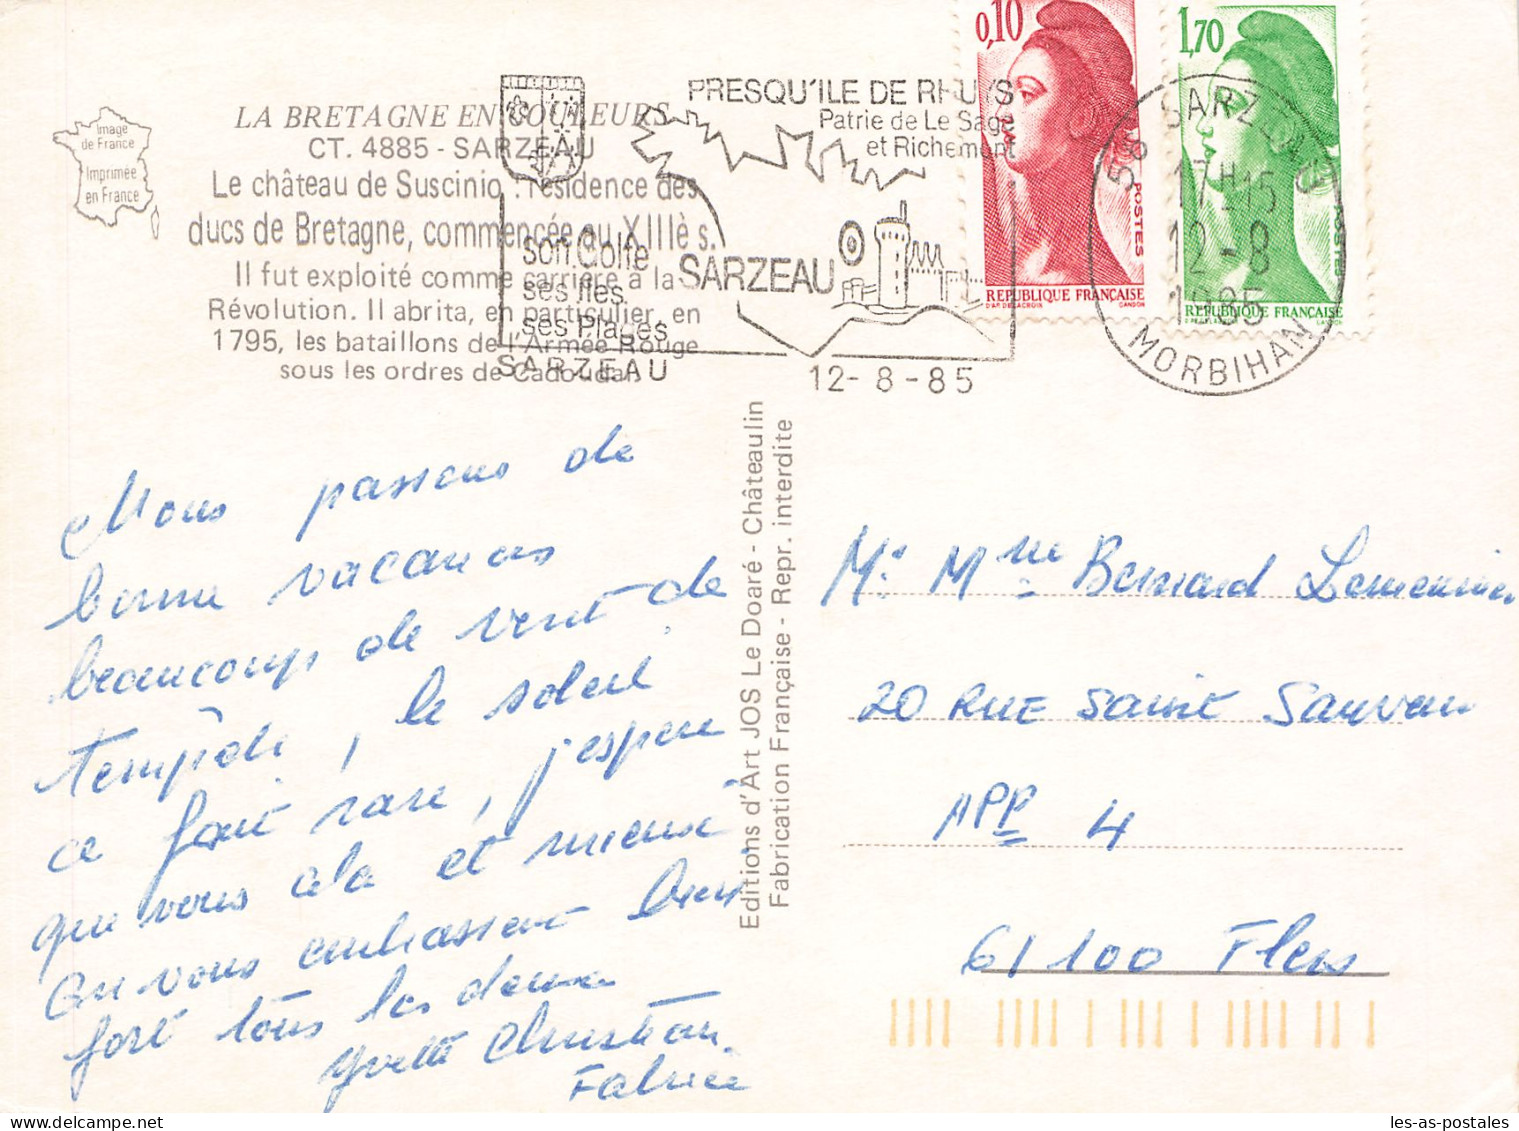 0,10
1,70
PRESQU'ILE DE RHUYS
Patrie de Le Sage
et Richemont
Image
de France
Imprimée
en France
LA BRETAGNE EN COULEURS
CT. 4885 - SARZEAU
Le château de Suscinio : résidence des
ducs de Bretagne, commencée au XIIIè s.
Il fut exploité comme carrière à la
Révolution. Il abrita, en particulier, en
1795, les bataillons de l'Armée Rouge
sous les ordres de Cadoudal.
son Golfe
ses Iles
ses Plages
SARZEAU
SARZEAU
12-8-85
POSTES
REPUBLIQUE FRANÇAISE
D'AP. DELACROIX GANDON
POSTES
REPUBLIQUE FRANÇAISE
56 SARZEAU
17H15
12-8
1985
MORBIHAN
Nous passons de
bonne vacances
beaucoup de vent de
tempête, le soleil
ce fait rare, j'espere
que vous cela et mieux
on vous embrassent bien
fort tous les deux
Yvette Christian
Fabrice
Editions d'Art JOS Le Doaré - Châteaulin
Fabrication Française - Repr. interdite
Mr Mme Bernard Lemeunier
20 RUE Saint Sauveur
APP 4
61100 Flers
les-as-postales